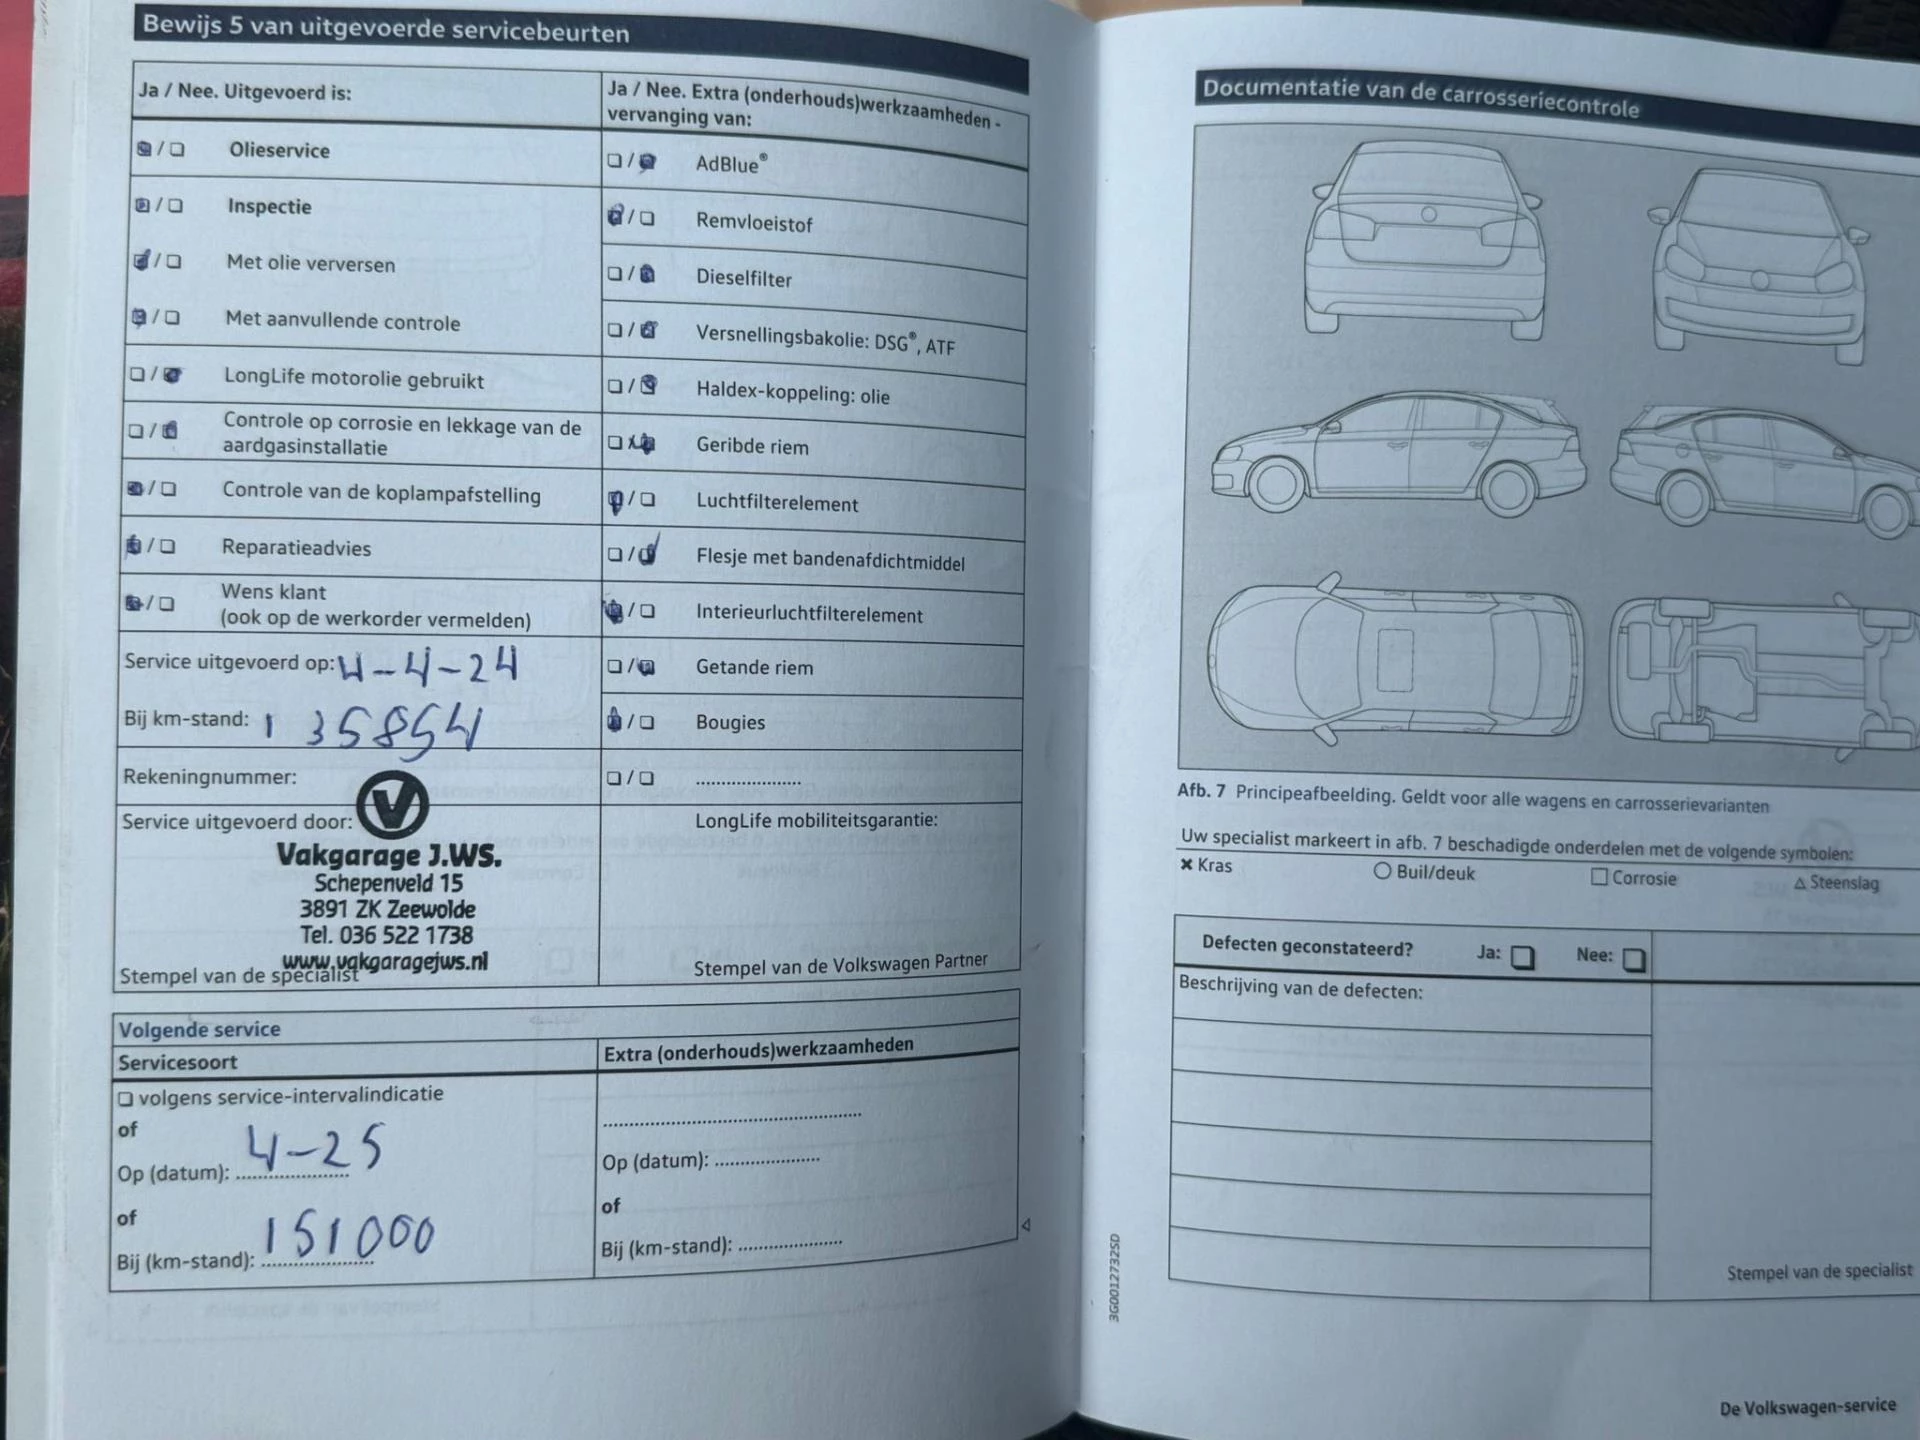 Bewijs 5 van uitgevoerde servicebeurten
Ja / Nee. Uitgevoerd is:
/ Olieservice
/ Inspectie
/ Met olie verversen
/ Met aanvullende controle
/ LongLife motorolie gebruikt
/ Controle op corrosie en lekkage van de
aardgasinstallatie
/ Controle van de koplampafstelling
/ Reparatieadvies
/ Wens klant
(ook op de werkorder vermelden)
Service uitgevoerd op: 4-4-24
Bij km-stand: 135854
Rekeningnummer:
Service uitgevoerd door:
V
Vakgarage J.WS.
Schepenveld 15
3891 ZK Zeewolde
Tel. 036 522 1738
www.vakgaragejws.nl
Stempel van de specialist
Ja / Nee. Extra (onderhouds)werkzaamheden -
vervanging van:
/ AdBlue®
/ Remvloeistof
/ Dieselfilter
/ Versnellingsbakolie: DSG®, ATF
/ Haldex-koppeling: olie
/ Geribde riem
/ Luchtfilterelement
/ Flesje met bandenafdichtmiddel
/ Interieurluchtfilterelement
/ Getande riem
/ Bougies
/ ....................
LongLife mobiliteitsgarantie:
Stempel van de Volkswagen Partner
Volgende service
Servicesoort
volgens service-intervalindicatie
of
Op (datum): 4-25
of
Bij (km-stand): 151000
Extra (onderhouds)werkzaamheden
Op (datum): ....................
of
Bij (km-stand): ....................
Documentatie van de carrosseriecontrole
Afb. 7 Principeafbeelding. Geldt voor alle wagens en carrosserievarianten
Uw specialist markeert in afb. 7 beschadigde onderdelen met de volgende symbolen:
× Kras ○ Buil/deuk □ Corrosie △ Steenslag
Defecten geconstateerd? Ja: Nee:
Beschrijving van de defecten:
Stempel van de specialist
3G0012732SD
De Volkswagen-service